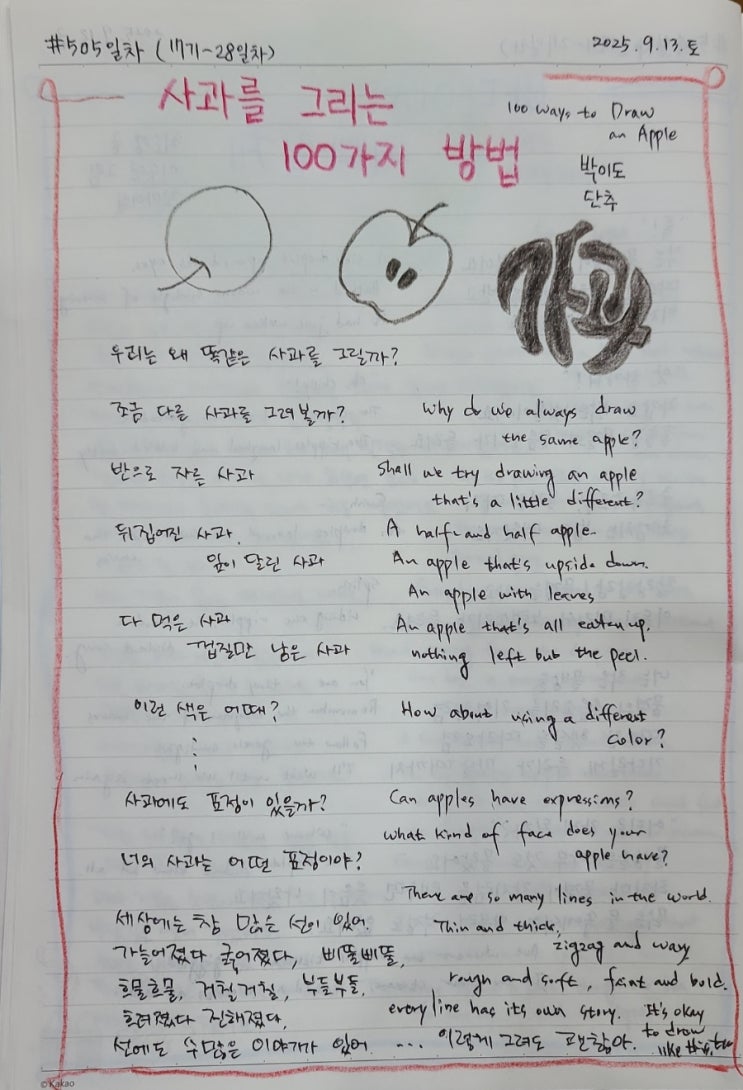 #505일차 (17기-28일차)
2025.9.13.토
사과를 그리는
100가지 방법
100 ways to Draw
an Apple
박이도
단추
사과
우리는 왜 똑같은 사과를 그릴까?
조금 다른 사과를 그려볼까?
why do we always draw
the same apple?
반으로 자른 사과
shall we try drawing an apple
that's a little different?
뒤집어진 사과
A half-and half apple.
잎이 달린 사과
An apple that's upside down.
An apple with leaves
다 먹은 사과
An apple that's all eaten up.
껍질만 남은 사과
nothing left but the peel.
이런 색은 어때?
How about using a different
color?
사과에도 표정이 있을까?
Can apples have expressions?
what kind of face does your
apple have?
너의 사과는 어떤 표정이야?
There are so many lines in the world.
세상에는 참 많은 선이 있어.
Thin and thick,
가늘어졌다 굵어졌다, 삐뚤삐뚤,
zigzag and wavy
흐물흐물, 거칠거칠, 부들부들.
rough and soft, faint and bold.
흐려졌다 진해졌다,
every line has its own story. It's okay
to draw
선에도 수많은 이야기가 있어. ... 이렇게 그려도 괜찮아.
like this, too
©Kakao